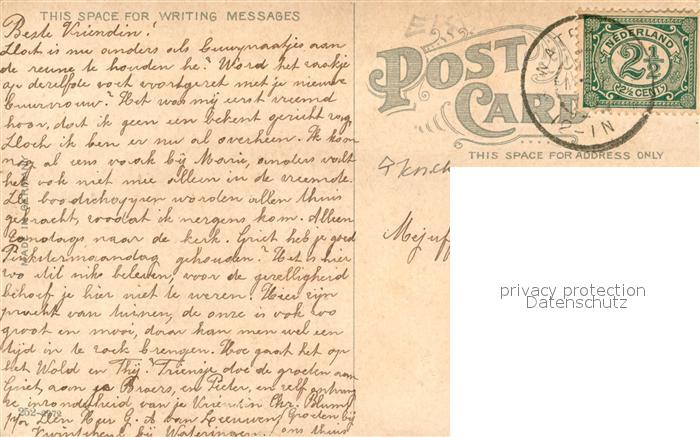 THIS SPACE FOR WRITING MESSAGES
Beste Vriendin!
Toch is nu anders als buurpraatjes aan
de reune te houden he? Word het zaakje
op derzelfde voet voortgezet met je nieuwe
buurvrouw? Het was mij eerst vreemd
hoor, dat ik geen een bekent gezicht zag,
Doch ik ben er nu al overheen. Ik kom
nog al eens vaak bij Marie, anders valt
het ook niet mee alleen in de vreemde.
De boodschappen worden allen thuis
gebracht, zoodat ik nergens kom. Alleen
Zondags naar de kerk. Griet heb je goed
Pinkstermaandag gehouden? Het is hier
zoo stil niks beleven, voor de gezelligheid
behoef je hier niet te wezen. Hier zijn
pracht van tuinen, de onze is ook zoo
groot en mooi, daar kan men wel een
tijd in te zoek brengen. Hoe gaat het op
het Wold en Thij? Triensje doe de groeten aan
Griet, aan je Broers, en Pieter, en zelf
in zonderheid van je Vriendin Chr.
p/a Den Heer G. A. van Leeuwen
Groeten bij
bij Wateringen
ons thuis
MADE IN GERMANY
252-2272
POST CARD
THIS SPACE FOR ADDRESS ONLY
NEDERLAND
2½
(2½ CENT)
WAT
12-1N
Mejuf
privacy protection
Datenschutz